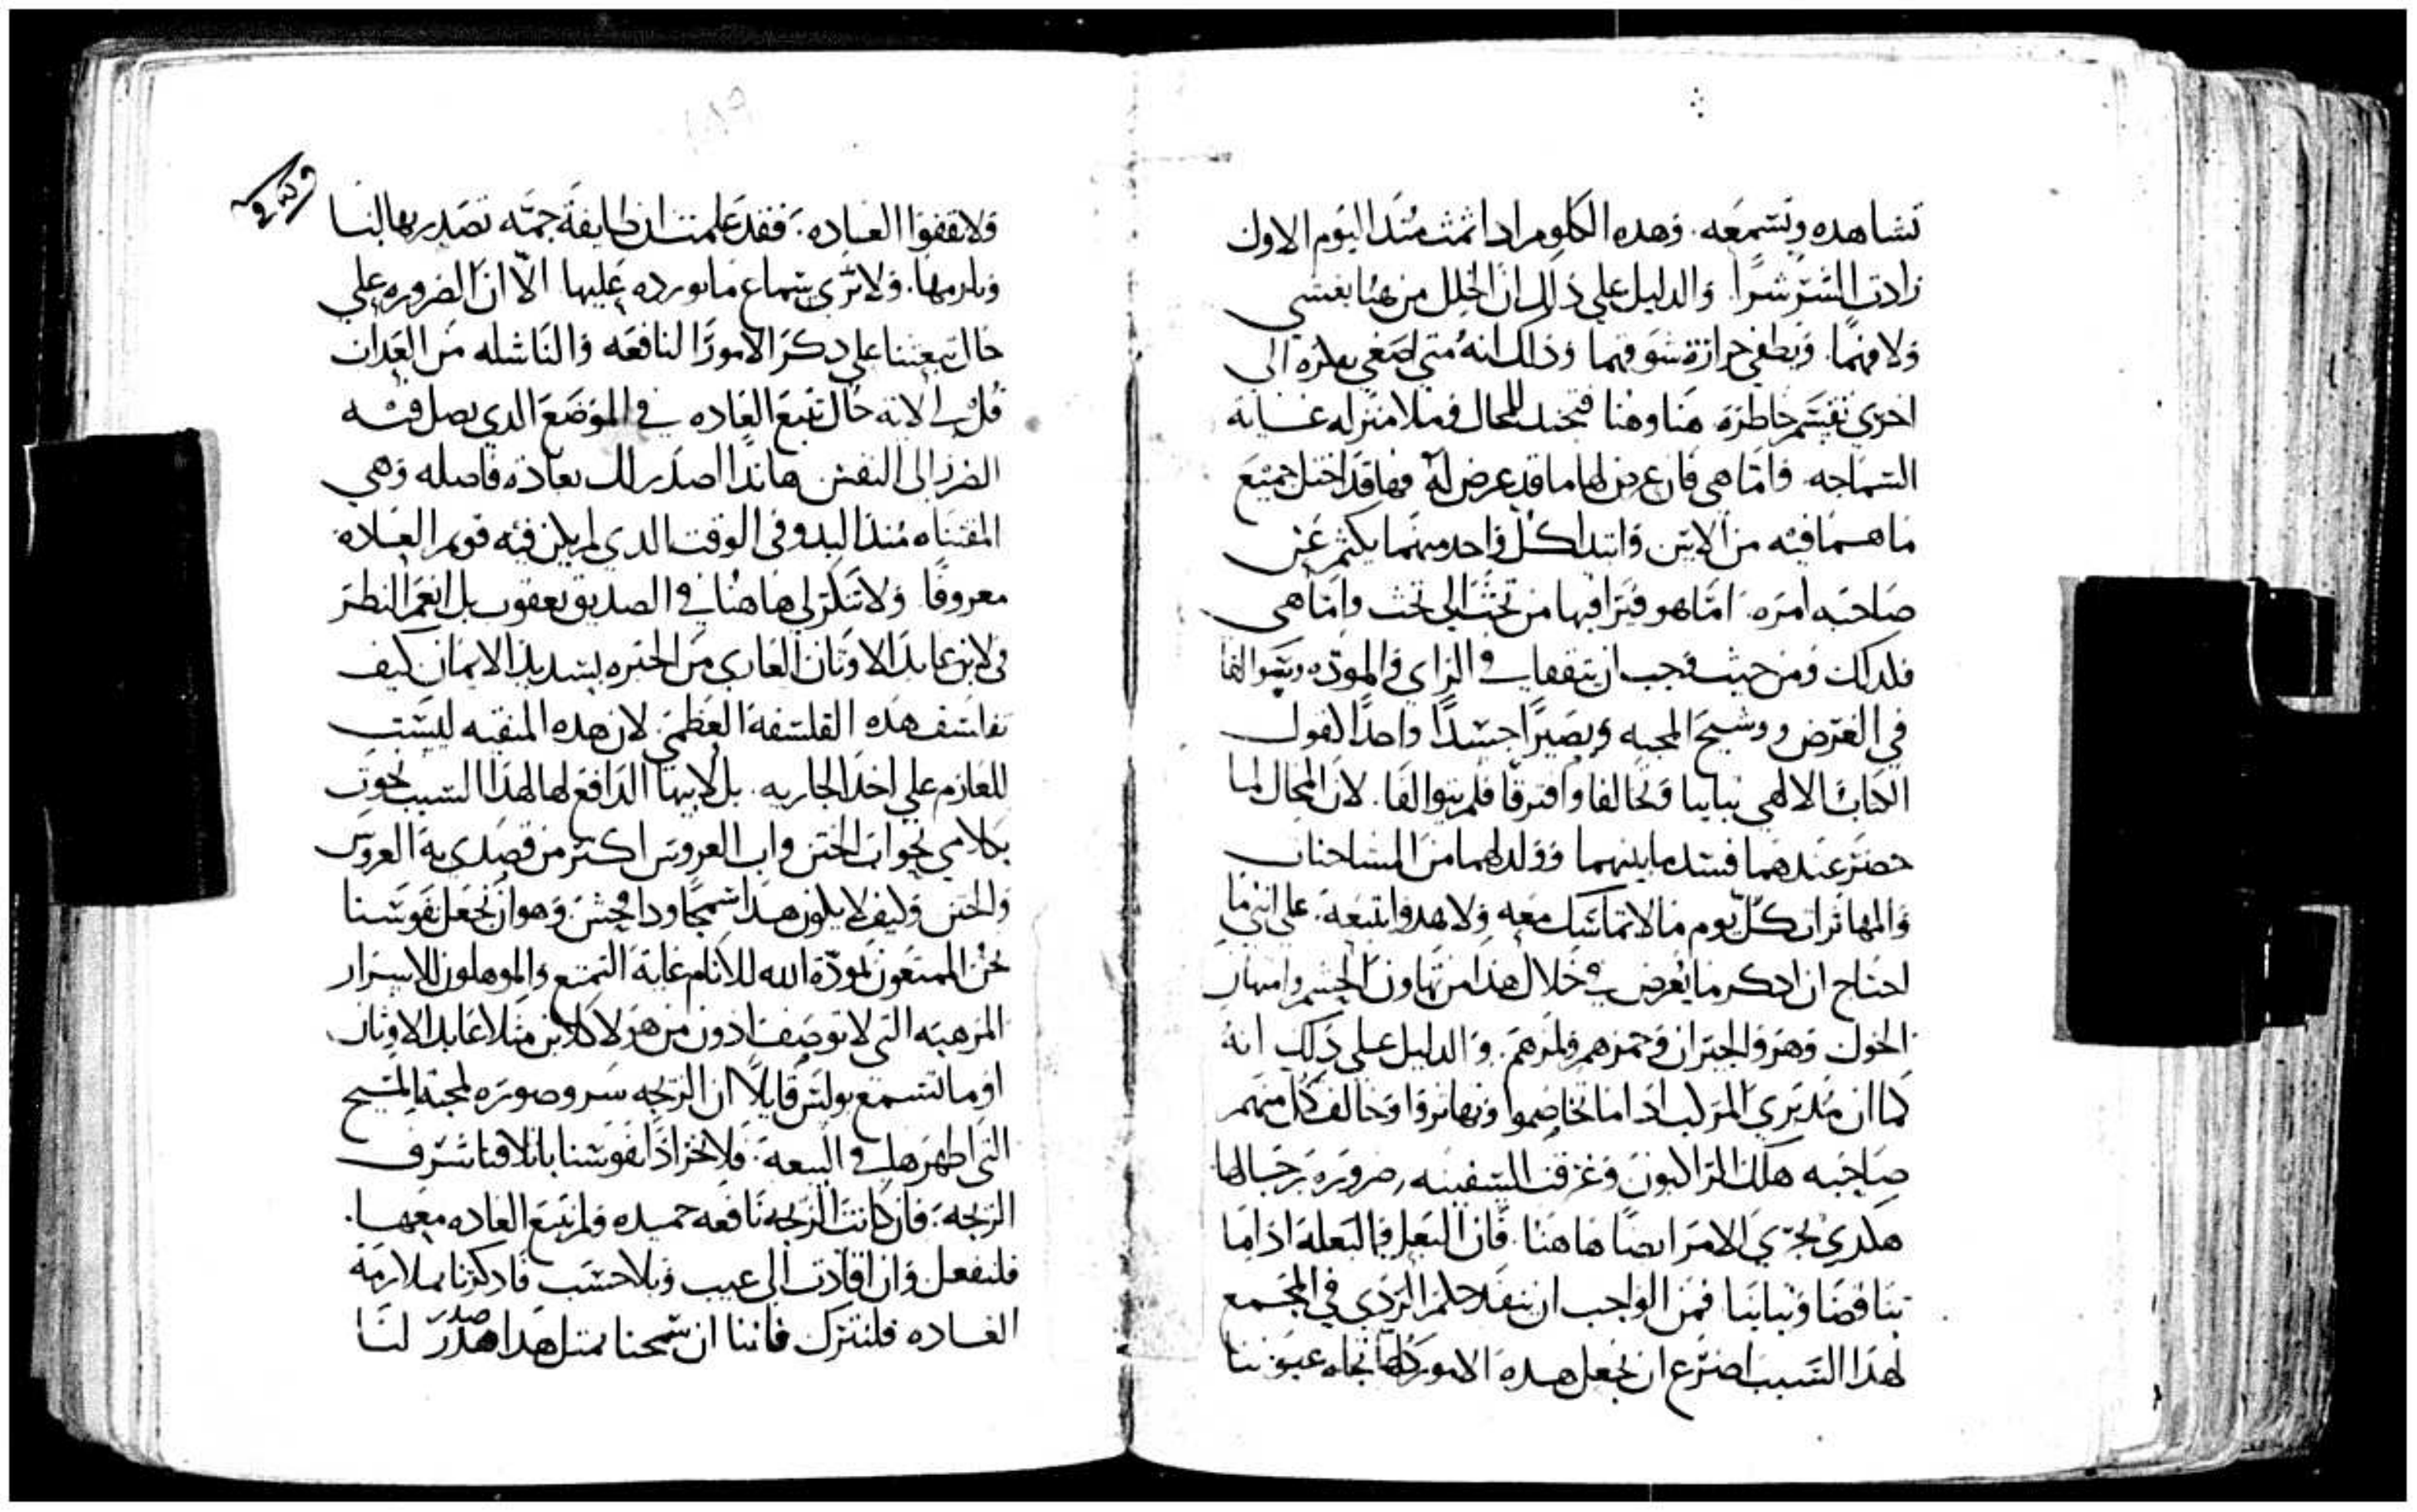 تشاهده وتسمعه. وهذه الكلوم اذا تمت منذ اليوم الاول
زادت الشر شرا. والدليل على ذلك ان الخلل من هنا يغشي
ولا فهما. ويطفي حرارة شوقهما وذلك انه متي اصغي بعلره الى
اخري تقسم خاطره هنا وهنا فيجد المحال في ملا منزله غاية
السماجه. واما هي فان عرض لها ما قد عرض له فها قد اختل جميع
ما هما فيه من الاثين وابتدا كل واحد منهما يكتم عن
صاحبه امره. اما هو فيرا فيها من تحت الى تحت واما هي
فلذلك ومن حيث وجب ان يتفقا في الراي والموده ويتوالفا
في الغرض ووشيج المحبه ويصيرا جسدا واحدا لقول
الكتاب الالهي تباينا وتخالفا وافترقا فلم يتوالفا. لان المحال لما
حضر عندهما فسد ما بينهما وولد لهما من المشاحنات
والمهاترات كل يوم ما لا تماسك معه ولا هدوا يتبعه. على انني ما
احتاج ان اذكر ما يعرض في خلال هذا من تهاون الحشم وامتهان
الخول وهزو الجيران وهمزهم ولمزهم. والدليل على ذلك انه
كما ان مدبري المركب اذا ما تخاصموا وتهاتروا وخالف كل منهم
صاحبه هلك الراكبون وغرقت السفينه ضروره برجالها
هكذي يجري الامر ايضا هاهنا. فان البعل والبعلة اذا ما
تناقضا وتباينا فمن الواجب ان ينفذ حكم الردي في المجمع
لهذا السبب اضرع ان نجعل هذه الامور كلها تجاه عيوننا
ولا نقفوا العاده. فقد علمت ان طايفة جمه تصدر بها لنا
وتلزمها. ولا تري سماع ما نورده عليها الا ان الضروره على
حال تبعثنا على ذكر الامور النافعه والناشله من العذاب
قل لي لانه حال تتبع العاده في الموضع الذي يصل فيه
الضرر الى النفس هاندا اصدر لك بعاده فاضله وهي
المقتناه منذ البدو في الوقت الذي لم يكن فيه قويم العباده
معروفا. ولا تذكر لي هاهنا في الصديق يعقوب بل انعم النظر
في لابن عابد الاوثان العاري من الخبره بسديد الايمان كيف
تفلسف هذه الفلسفة العظمي. لان هذه المنقبه ليست
للعازم على اخذ الجاريه. بل لابيها الدافع لها لهذا السبب نحوت
بكلامي نحو ابي الختن واب العروس اكثر من قصدي به العروس
والختن وكيف لا يكون هذا سمجا وذا فحش. وهو ان نجعل نفوسنا
نحن الممتعون بمودة الله للانام غاية التمتع والموهلون للاسرار
المرهبه التي لا توصف ادون من هولا كلابن مثلا عابد الاوثان.
اوما تسمع بولس قايلا ان الزيجه سر وصوره لمحبة المسيح
التي اظهرها في البيعه. فلا نخز اذا نفوسنا باتلافنا شرف
الزيجة. فان كانت الزيجه نافعه حميده ولم تتبع العاده معها.
فلنفعل وان اقادت الى عيب وبلا حسب ما ذكرنا بملازمة
العاده فلنترك فاننا ان سمحنا بمثل هذا هدر لنا